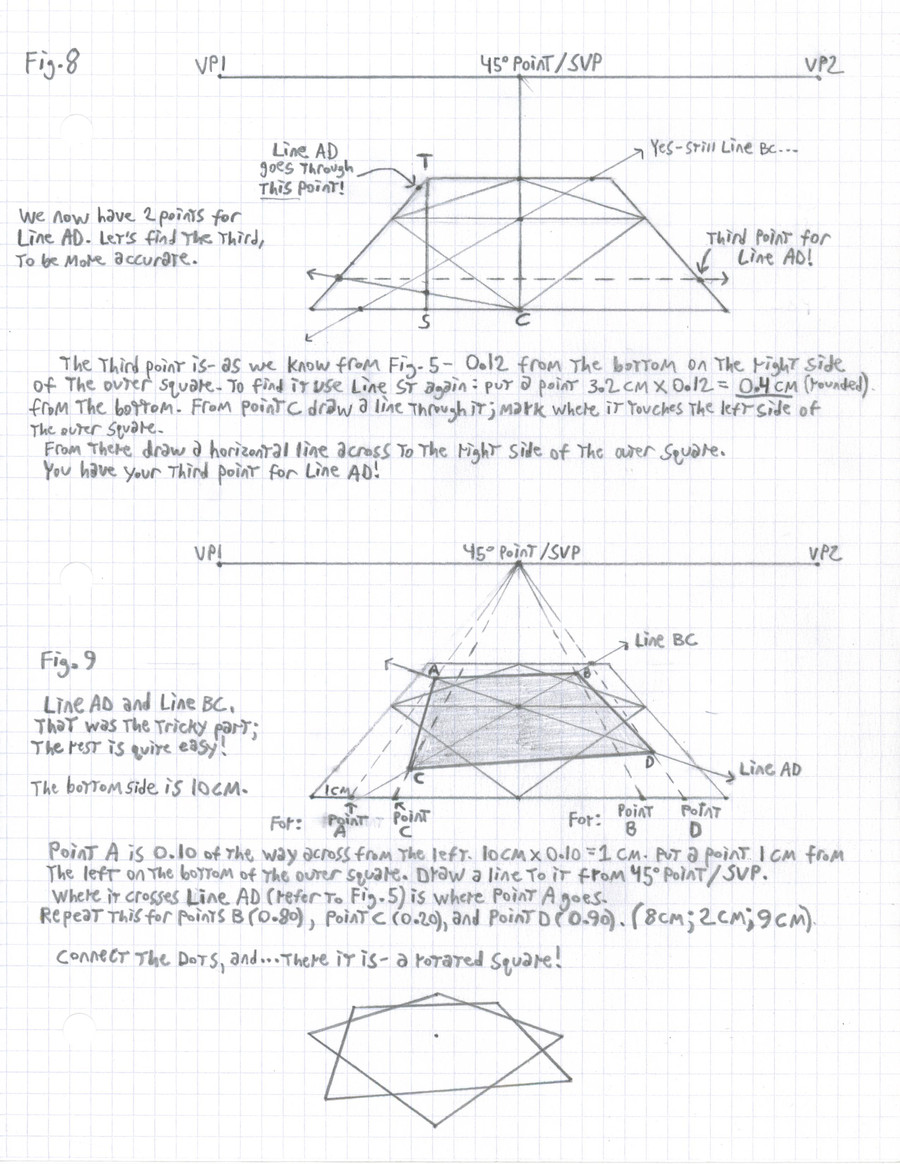 Fig. 8
VP1
45° Point/SVP
VP2
Line AD
goes Through
This Point!
T
Yes-still Line BC...
We now have 2 points for
Line AD. Let's find The Third,
To be More accurate.
Third Point for
Line AD!
S
C
The Third point is- as we know from Fig. 5 - 0.12 from The bottom on The right side
of The outer square. To find it use Line ST again: put a point 3.2 cm x 0.12 = 0.4 cm (rounded).
from The bottom. From point C draw a line Through it; mark where it Touches The left side of
The outer square.
From There draw a horizontal line across To The right side of The outer square.
You have your Third point for Line AD!
VP1
45° Point/SVP
VP2
Fig. 9
Line BC
A
B
Line AD and Line BC.
That was The Tricky part;
The rest is quite easy!
The bottom side is 10cm.
C
D
Line AD
1cm
For:
Point
A
Point
C
For:
Point
B
Point
D
Point A is 0.10 of The way across from The left. 10cm x 0.10 = 1 cm. Put a point 1 cm from
The left on The bottom of The outer square. Draw a line To it from 45° Point/SVP.
Where it crosses Line AD (refer To Fig. 5) is where Point A goes.
Repeat This for points B (0.80), Point C (0.20), and Point D (0.90). (8cm; 2cm; 9cm).
Connect The Dots, and... There it is - a rotated square!